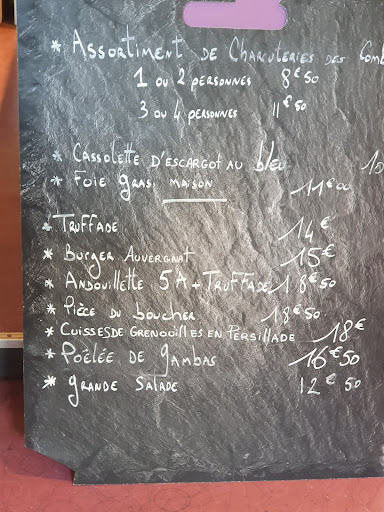 * ASSORTIMENT DE CHARCUTERIES DES
1 OU 2 PERSONNES 8€50
3 OU 4 PERSONNES 11€50
* CASSOLETTE D'ESCARGOT AU bleu
* FOIE GRAS MAISON 11€00
* TRUFFADE 14€
* BURGER AUVERGNAT 15€
* ANDOUILLETTE 5A + TRUFFADE 18€50
* PIÈCE DU BOUCHER 18€50
* CUISSES DE GRENOUILLES EN PERSILLADE 18€
* POÊLÉE DE GAMBAS 16€50
* GRANDE SALADE 12€50